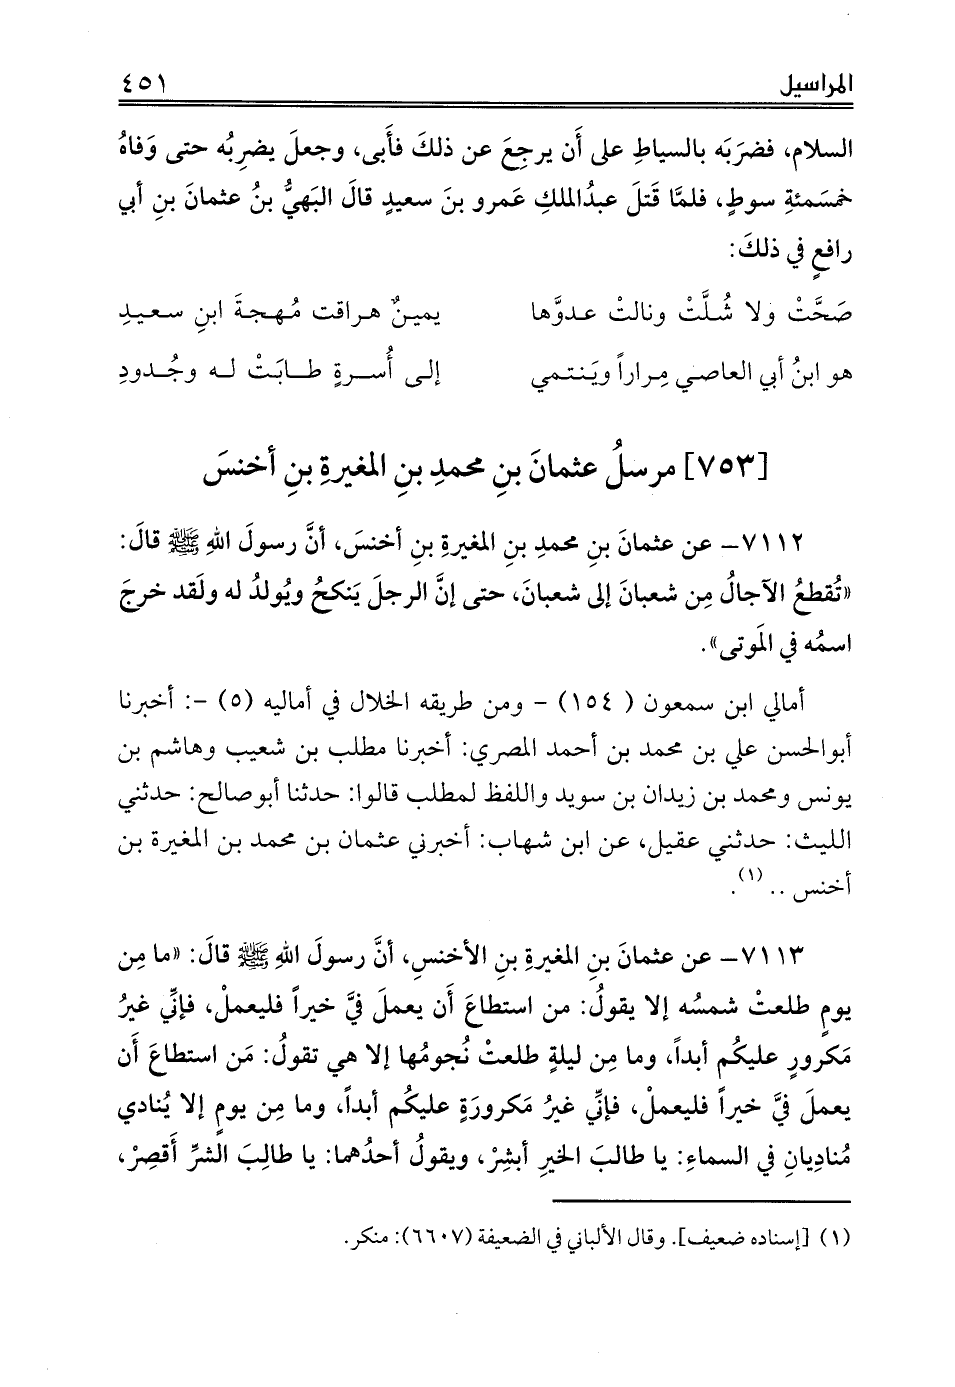 المراسيل ٤٥١
السلام، فضرَبَه بالسياطِ على أَن يرجِعَ عن ذلكَ فأَبى، وجعلَ يضرِبُه حتى وَفاهُ
خمسَمئةِ سوطٍ، فلمَّا قَتلَ عبدُالملكِ عَمرو بنَ سعيدٍ قالَ البَهيُّ بنُ عثمانَ بنِ أبي
رافعٍ في ذلكَ:
صَحَّتْ ولا شُلَّتْ ونالتْ عدوَّها يمينٌ هراقت مُهجةَ ابنِ سعيدِ
هو ابنُ أبي العاصي مِراراً ويَنتمي إلى أُسرةٍ طابَتْ له وجُدودِ
[٧٥٣] مرسلُ عثمانَ بنِ محمدِ بنِ المغيرةِ بنِ أخنسَ
٧١١٢- عن عثمانَ بنِ محمدِ بنِ المغيرةِ بنِ أخنسَ، أنَّ رسولَ اللهِ ﷺ قالَ:
«تُقطعُ الآجالُ مِن شعبانَ إلى شعبانَ، حتى إنَّ الرجلَ يَنكحُ ويُولدُ له ولَقد خرجَ
اسمُه في المَوتى».
أمالي ابن سمعون ( ١٥٤) - ومن طريقه الخلال في أماليه (٥) -: أخبرنا
أبوالحسن علي بن محمد بن أحمد المصري: أخبرنا مطلب بن شعيب وهاشم بن
يونس ومحمد بن زيدان بن سويد واللفظ لمطلب قالوا: حدثنا أبوصالح: حدثني
الليث: حدثني عقيل، عن ابن شهاب: أخبرني عثمان بن محمد بن المغيرة بن
أخنس .. (١).
٧١١٣- عن عثمانَ بنِ المغيرةِ بنِ الأخنسِ، أنَّ رسولَ اللهِ ﷺ قالَ: «ما مِن
يومٍ طلعتْ شمسُه إلا يقولُ: من استطاعَ أَن يعملَ فيَّ خيراً فليعملْ، فإنِّي غيرُ
مَكرورٍ عليكُم أبداً، وما مِن ليلةٍ طلعتْ نُجومُها إلا هي تقولُ: مَن استطاعَ أَن
يعملَ فيَّ خيراً فليعملْ، فإنِّي غيرُ مَكرورَةٍ عليكُم أبداً، وما مِن يومٍ إلا يُنادي
مُنادِيانِ في السماءِ: يا طالبَ الخيرِ أبشِرْ، ويقولُ أحدُهما: يا طالِبَ الشرِّ أَقصِرْ،
(١) [إسناده ضعيف]. وقال الألباني في الضعيفة (٦٦٠٧): منكر.